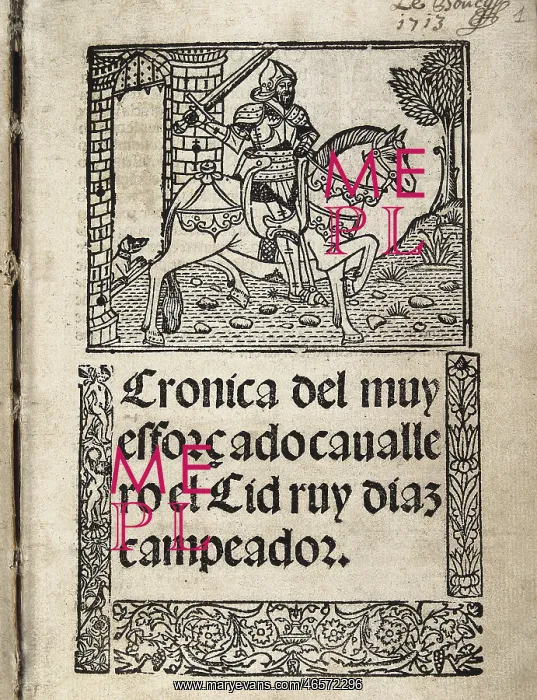 1713
1
ME
PL
Cronica del muy
efforçado caualle
ro el Cid ruy diaz
campeador.
ME
PL
www.maryevans.com/46572296